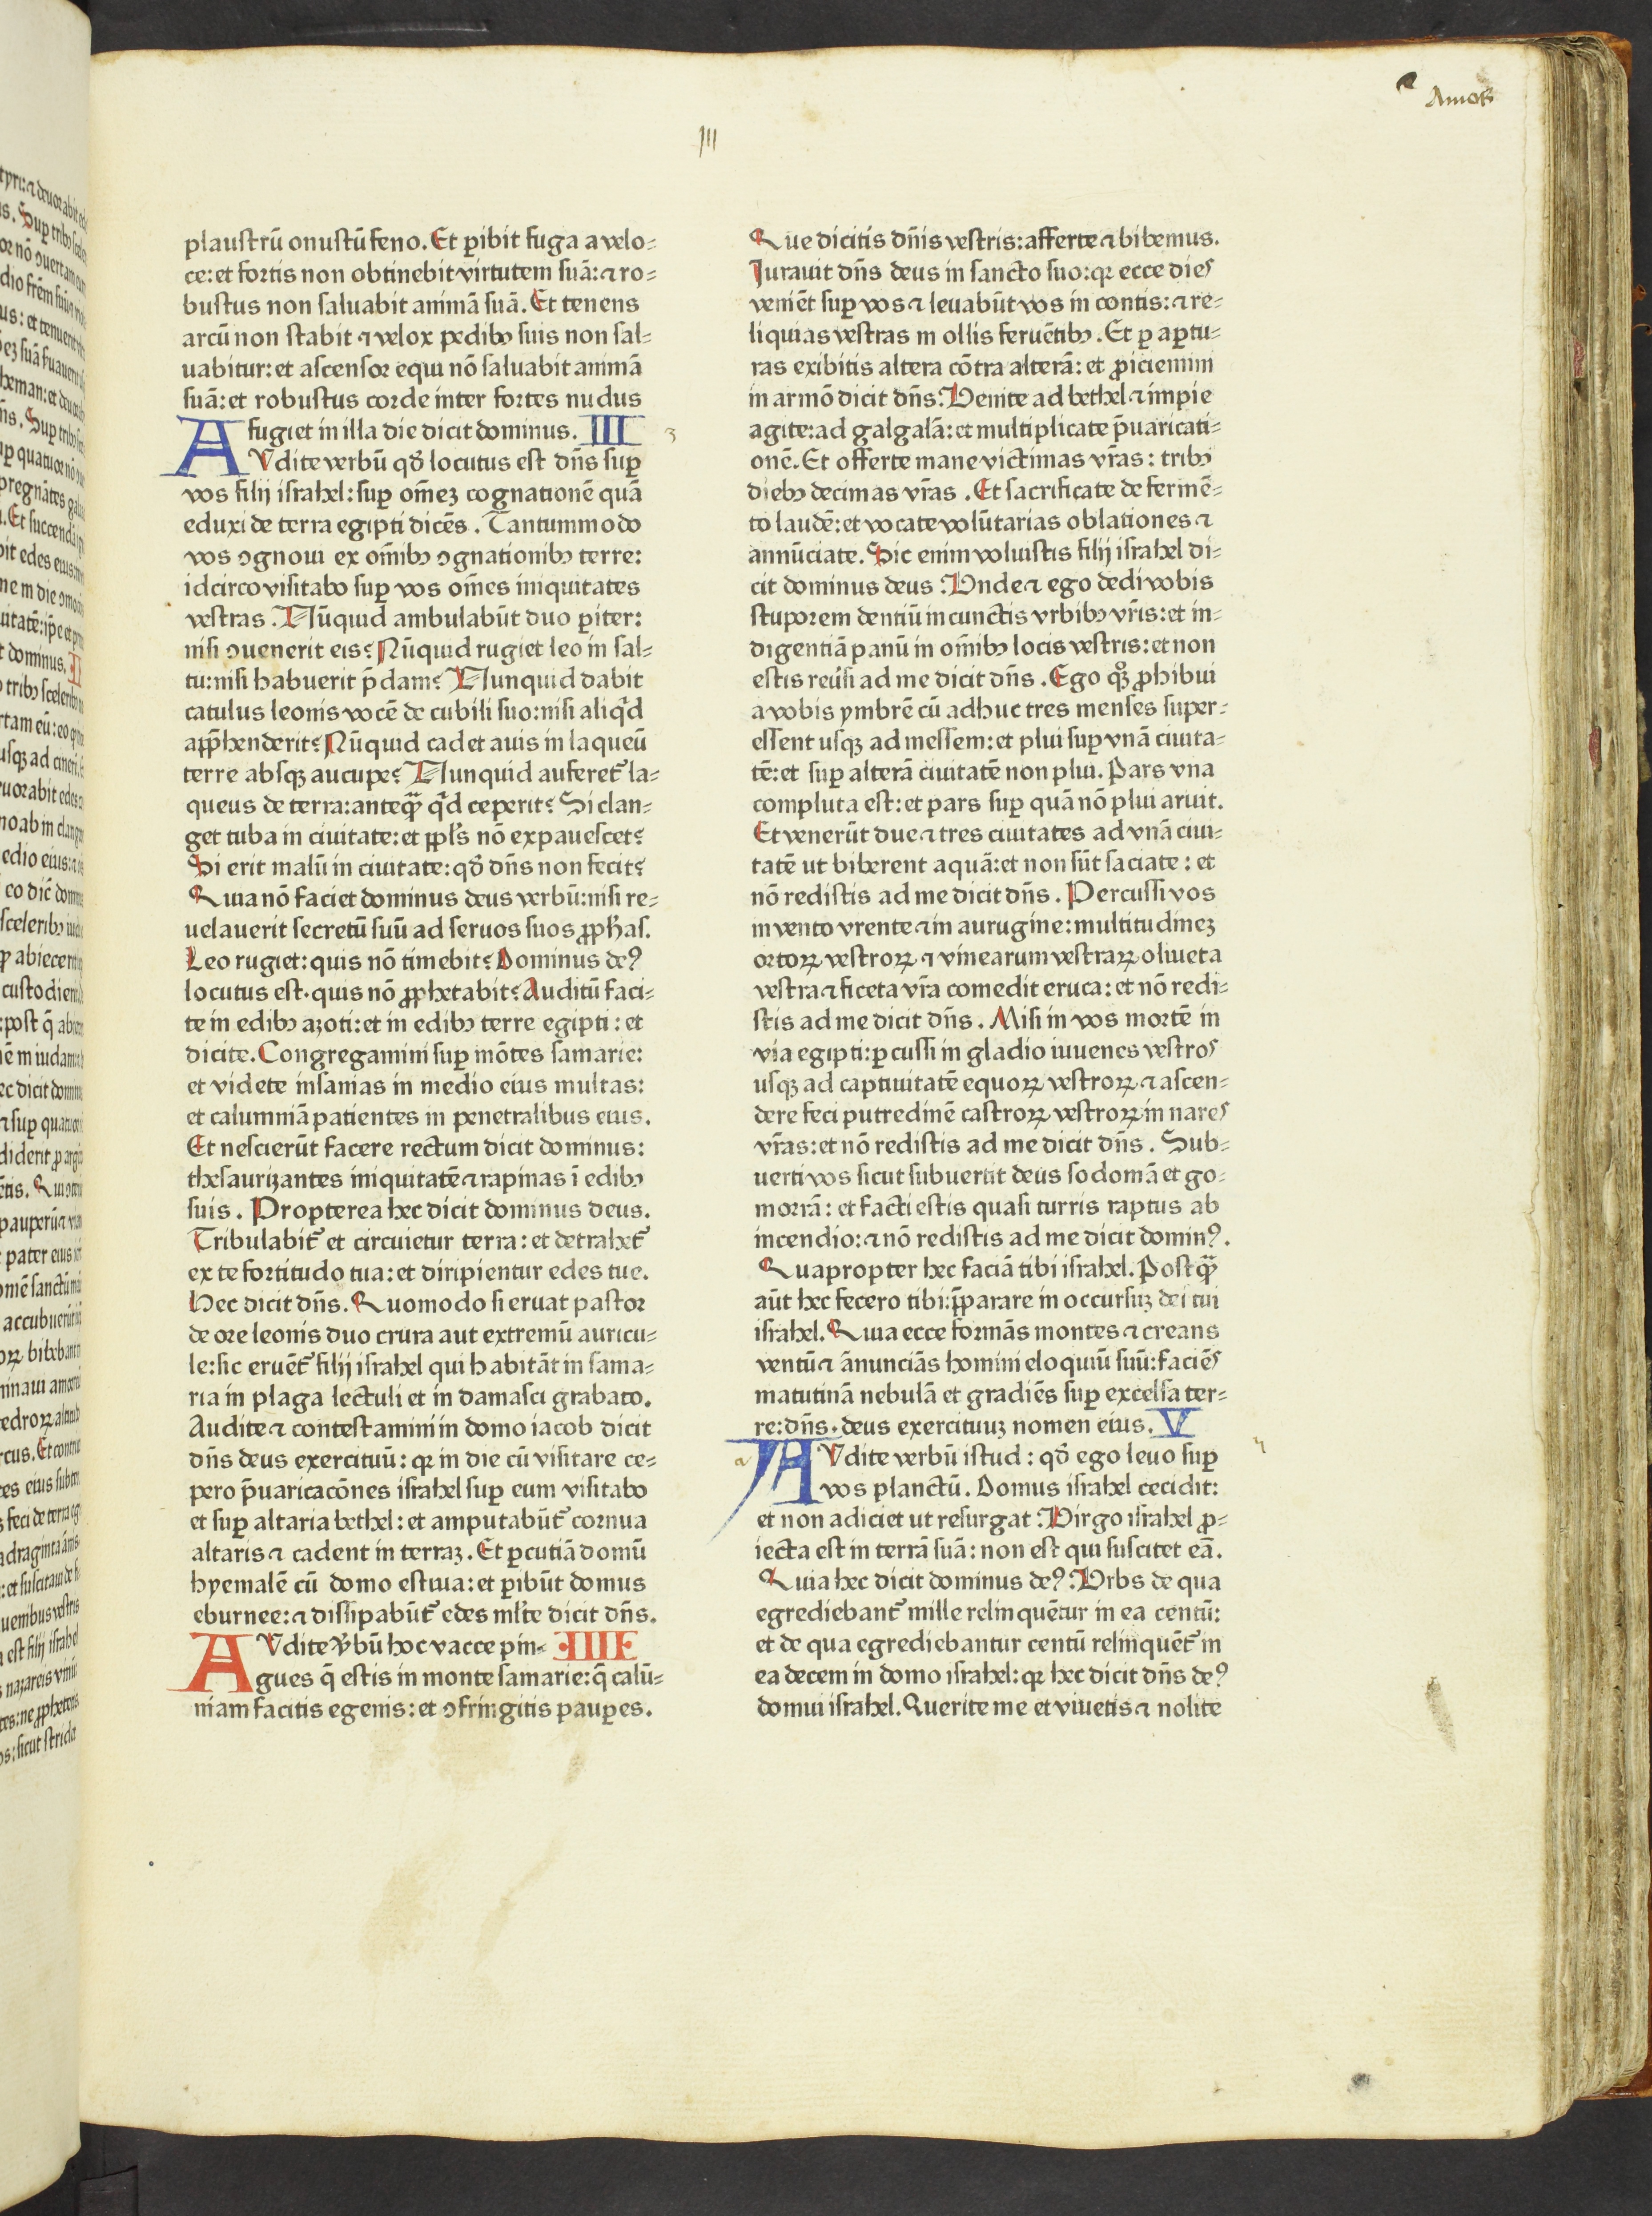 Amos
III
plaustrū onustū feno. Et ꝑibit fuga a velo⸗
ce: et fortis non obtinebit virtutem suā: ⁊ ro⸗
bustus non saluabit animā suā. Et tenens
arcū non stabit ⁊ velox pedibꝰ suis non sal⸗
uabitur: et ascensor equi nō saluabit animā
suā: et robustus corde inter fortes nudus
fugiet in illa die dicit dominus. III 3
AVdite verbū qđ locutus est dn̄s suꝑ
vos filij israhel: suꝑ om̄eꝫ cognationē quā
eduxi de terra egipti dicēs. Tantummodo
vos ꝯgnoui ex om̄ibꝰ ꝯgnationibꝰ terre:
idcirco visitabo suꝑ vos om̄es iniquitates
vestras. Nūquid ambulabūt duo ꝑiter:
nisi ꝯuenerit eis? Nūquid rugiet leo in sal⸗
tu: nisi habuerit p̄dam? Nunquid dabit
catulus leonis vocē de cubili suo: nisi aliqͥd
app̄henderit? Nūquid cadet auis in laqueū
terre absqꝫ aucupe? Nunquid auferet᷑ la⸗
queus de terra: anteqꝫ̄ qͥd ceperit? Si clan⸗
get tuba in ciuitate: et ppl's nō expauescet?
Si erit malū in ciuitate: qđ dn̄s non fecit?
Quia nō faciet dominus deus verbū: nisi re⸗
uelauerit secretū suū ad seruos suos ꝓph̄as.
Leo rugiet: quis nō timebit? Dominus deꝰ
locutus est. quis nō ꝓphetabit? Auditū faci⸗
te in edibꝰ azoti: et in edibꝰ terre egipti: et
dicite. Congregamini suꝑ mōtes samarie:
et videte insanias in medio eius multas:
et calumniā patientes in penetralibus eius.
Et nescierūt facere rectum dicit dominus:
thesaurizantes iniquitatē ⁊ rapinas ī edibꝰ
suis. Propterea hec dicit dominus deus.
Tribulabit᷑ et circuietur terra: et detrahet᷑
ex te fortitudo tua: et diripientur edes tue.
Hec dicit dn̄s. Quomodo si eruat pastor
de ore leonis duo crura aut extremū auricu⸗
le: sic eruēt᷑ filij israhel qui habitāt in sama⸗
ria in plaga lectuli et in damasci grabato.
Audite ⁊ contestamini in domo iacob dicit
dn̄s deus exercituū: qꝛ in die cū visitare ce⸗
pero p̄uaricacōnes israhel suꝑ eum visitabo
et suꝑ altaria bethel: et amputabūt᷑ cornua
altaris ⁊ cadent in terraꝫ. Et ꝑcutiā domū
hyemalē cū domo estiua: et ꝑibūt domus
eburnee: ⁊ dissipabūt᷑ edes ml'te dicit dn̄s.
AVdite v̓bū hoc vacce pin⸗ IIII
gues q̄ estis in monte samarie: q̄ calū⸗
niam facitis egenis: et ꝯfringitis pauꝑes.
Que dicitis dn̄is vestris: afferte ⁊ bibemus.
Jurauit dn̄s deus in sancto suo: qꝛ ecce dies
veniēt suꝑ vos ⁊ leuabūt vos in contis: ⁊ re⸗
liquias vestras in ollis feruētibꝰ. Et ꝑ aꝑtu⸗
ras exibitis altera cōtra alterā: et ꝓiciemini
in armō dicit dn̄s. Venite ad bethel ⁊ impie
agite: ad galgalā: et multiplicate p̄uaricati⸗
onē. Et offerte mane victimas vr̄as: tribꝰ
diebꝰ decimas vr̄as. Et sacrificate de fermē⸗
to laudē: et vocate volūtarias oblationes ⁊
annūciate. Sic enim voluistis filij israhel di⸗
cit dominus deus. Vnde ⁊ ego dedi vobis
stuporem dentiū in cunctis vrbibꝰ vr̄is: et in⸗
digentiā panū in om̄ibꝰ locis vestris: et non
estis reūsi ad me dicit dn̄s. Ego qꝫ ꝓhibui
a vobis ymbrē cū adhuc tres menses super⸗
essent usqꝫ ad messem: et plui suꝑ vnā ciuita⸗
tē: et suꝑ alterā ciuitatē non plui. Pars vna
compluta est: et pars suꝑ quā nō plui aruit.
Et venerūt due ⁊ tres ciuitates ad vnā ciui⸗
tatē ut biberent aquā: et non sūt saciate: et
nō redistis ad me dicit dn̄s. Percussi vos
in vento vrente ⁊ in aurugine: multitudineꝫ
ortoꝝ vestroꝝ ⁊ vinearum vestraꝝ oliueta
vestra ⁊ ficeta vr̄a comedit eruca: et nō redi⸗
stis ad me dicit dn̄s. Misi in vos mortē in
via egipti: ꝑcussi in gladio iuuenes vestros
usqꝫ ad captiuitatē equoꝝ vestroꝝ ⁊ ascen⸗
dere feci putredinē castroꝝ vestroꝝ in nares
vr̄as: et nō redistis ad me dicit dn̄s. Sub⸗
uerti vos sicut subuertit deus sodomā et go⸗
morrā: et facti estis quasi turris raptus ab
incendio: ⁊ nō redistis ad me dicit dominꝰ.
Quapropter hec faciā tibi israhel. Postqꝫ̄
aūt hec fecero tibi: p̄parare in occursuꝫ dei tui
israhel. Quia ecce formās montes ⁊ creans
ventū ⁊ ānunciās homini eloquiū suū: faciēs
matutinā nebulā et gradiēs suꝑ excelsa ter⸗
re: dn̄s. deus exercituuꝫ nomen eius. V
AVdite verbū istud: qđ ego leuo suꝑ
vos planctū. Domus israhel cecidit:
et non adiciet ut resurgat. Virgo israhel ꝓ⸗
iecta est in terrā suā: non est qui suscitet eā.
Quia hec dicit dominus deꝰ. Vrbs de qua
egrediebant᷑ mille relinquētur in ea centū:
et de qua egrediebantur centū relinquēt᷑ in
ea decem in domo israhel: qꝛ hec dicit dn̄s deꝰ
domui israhel. Querite me et viuetis ⁊ nolite